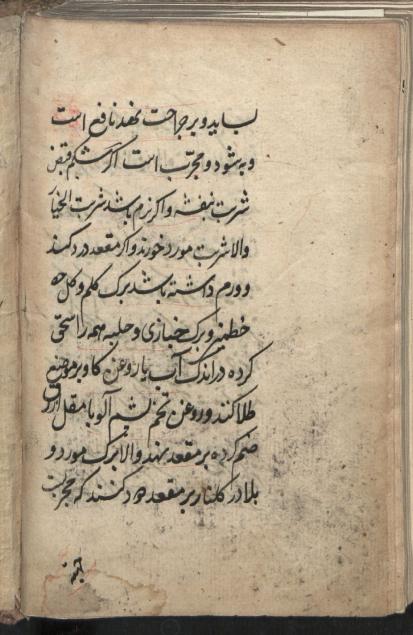 بساید و بر جراحت نهد نافع است
و به شود و مجربست است اگر شکم قبض
شربت بنفشه و اگر نرم باشد شربت الخیار
والا شربت مورد خورند و اگر مقعد درد کند
و ورم داشته باشد برک کلم و کل
خطمی و برک خبازی و حلبه همه را سحق
کرده در اندک آب با روغن کاو بر موضع
طلا کنند و روغن تخم زردآلو با مقل ازرق
ضم کرده بر مقعد نهند والا برک مورد و
بلادر کلنار بر مقعد دود کنند که مجربست